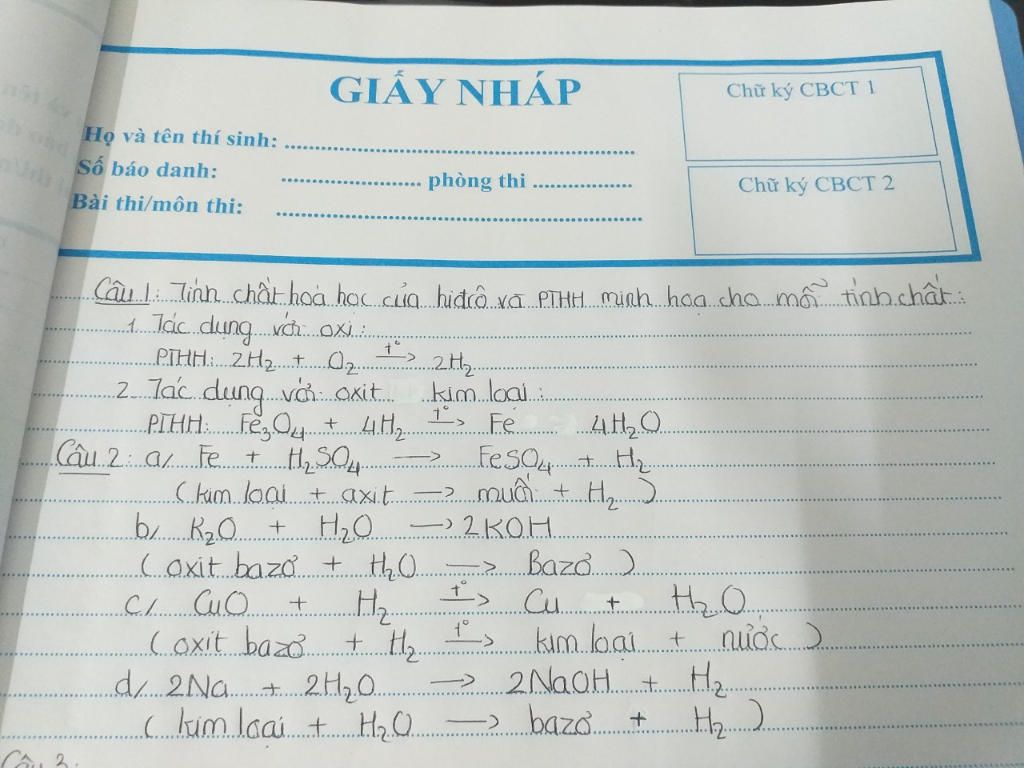 GIẤY NHÁP
Chữ ký CBCT 1
Họ và tên thí sinh: ........................................
Số báo danh: ........................ phòng thi ..................
Bài thi/môn thi: ........................................
Chữ ký CBCT 2
Câu 1: Tính chất hoá học của hiđrô và PTHH minh hoạ cho mỗi tính chất:
1. Tác dụng với oxi:
PTHH: 2H₂ + O₂ —t°→ 2H₂
2. Tác dụng với oxit kim loại:
PTHH: Fe₃O₄ + 4H₂ —t°→ Fe 4H₂O
Câu 2: a/ Fe + H₂SO₄ → FeSO₄ + H₂
(kim loại + axit → muối + H₂)
b/ K₂O + H₂O → 2KOH
(oxit bazơ + H₂O → Bazơ)
c/ CuO + H₂ —t°→ Cu + H₂O
(oxit bazơ + H₂ —t°→ kim loại + nước)
d/ 2Na + 2H₂O → 2NaOH + H₂
(kim loại + H₂O → bazơ + H₂)
Câu 3: